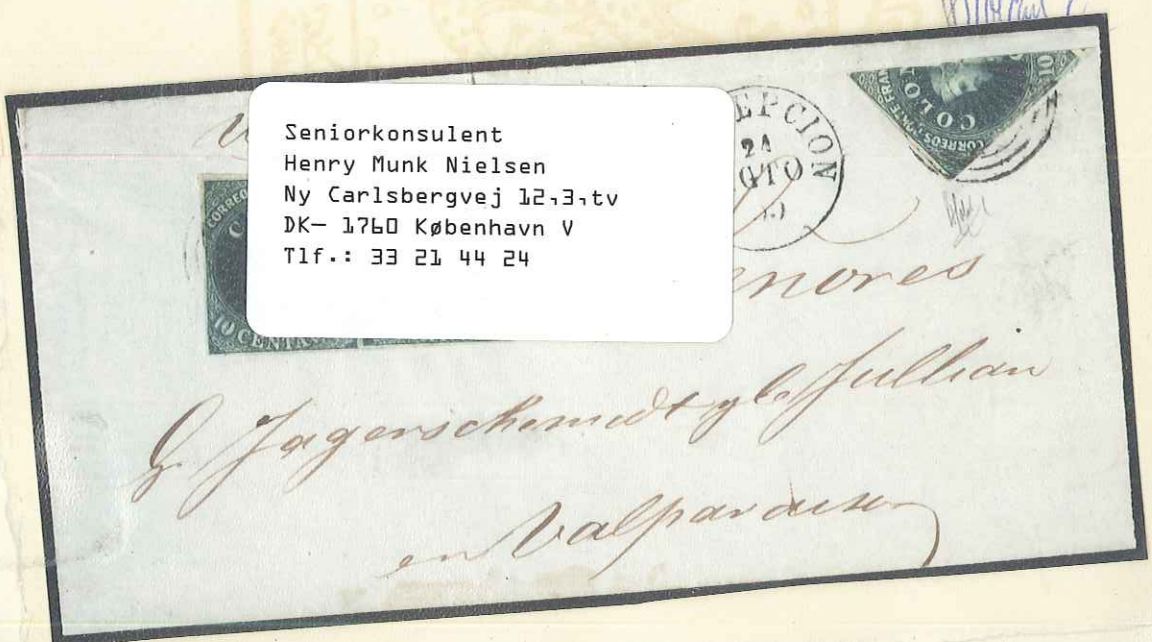 Seniorkonsulent
Henry Munk Nielsen
Ny Carlsbergvej 12,3,tv
DK- 1760 København V
Tlf.: 33 21 44 24
EPCION
24
GTO
CORREOS PORTE FRAN
COLO
10
CORREO
C
10 CENTA
nores
Jagerschmidt y Ca Jullian
en Valparaiso